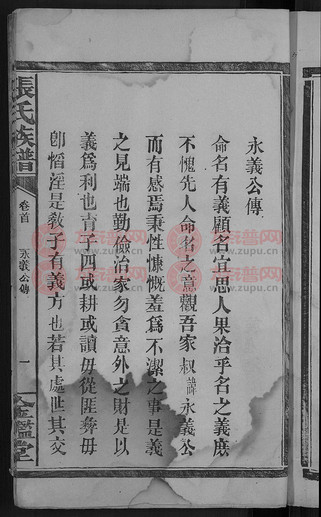 永義公傳
命名有義顧名宜思人果洽乎名之義庶
不愧先人命名之意觀吾家叔諱永義公
而有感焉秉性慷慨羞為不潔之事是義
之見端也勤儉治家勿貪意外之財是以
義為利也育子四或耕或讀毋從匪彞毋
即慆淫是敎子有義方也若其處世其交
張氏族譜
卷首
永義公傳
一
金鑑堂